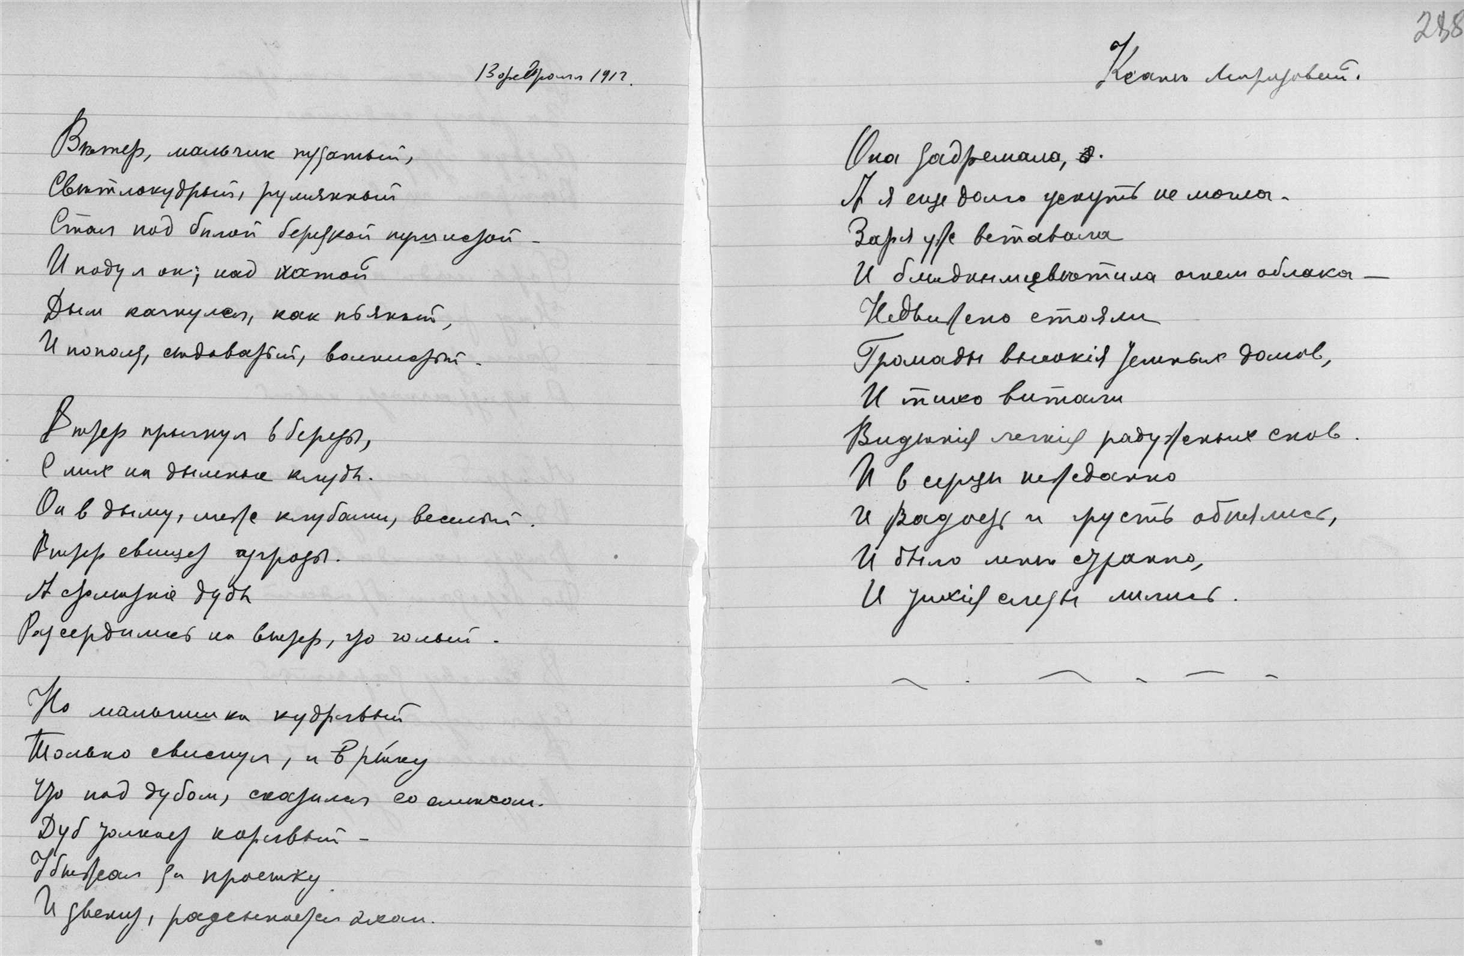 13 февраля 1912.
Вѣтер, мальчик пузатый,
Свѣтлокудрый, румянный
Стал под бѣлой березкой пушистой –
И подул он; над хатой
Дым качнулся, как пьяный,
И пополз, сѣдоватый, волнистый.
Вѣтер прыгнул в березы,
С них на дымные клубы.
Он в дыму, меж клубами, веселый.
Вѣтер свищет угрозы.
А столѣтніе дубы
Рассердились на вѣтер, что голый.
Но мальчишка кудрявый
Только свиснул, и в рѣчку
Что под дубом, скатился со смѣхом.
Дуб толкнет корявый –
Убѣжал за
И звенит, раздѣлнается эхом.
238
Ксаньѣ
Она задремала,
А я еще долго уснуть не могла.
Заря уже вставала
И блѣдным свѣтила огнем облака —
Недвижно стояли
Громады высокія темных домов,
И тихо витали
Видѣнія легкія радужных снов.
И в сердцѣ нежданно
И Радость и грусть обнялись,
И было мнѣ странно,
И тихія слезы лились.